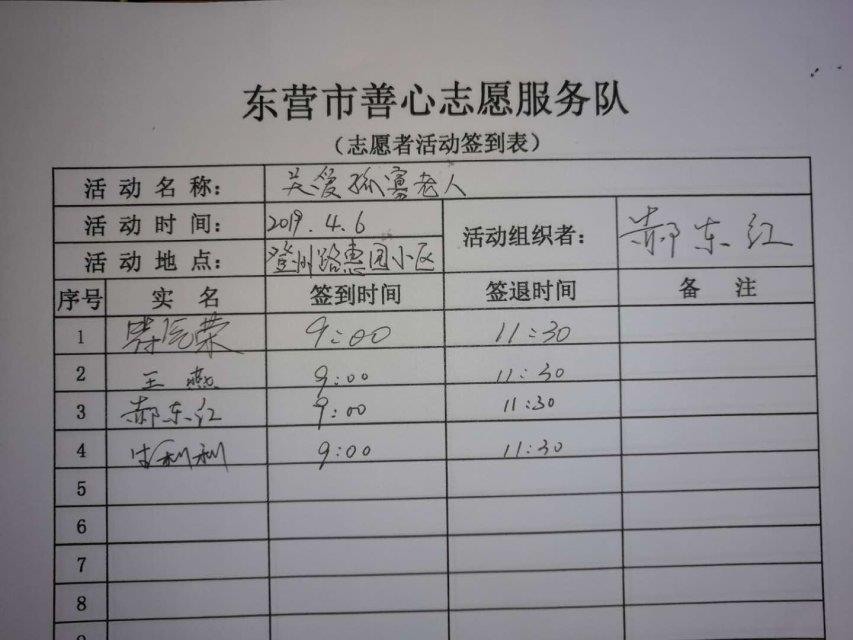 东营市善心志愿服务队
（志愿者活动签到表）
活动名称： 关爱孤寡老人
活动时间： 2019.4.6 活动组织者： 郝东红
活动地点： 登州路惠园小区
序号 实名 签到时间 签退时间 备注
1 荣 9:00 11:30
2 王燕 9:00 11:30
3 郝东红 9:00 11:30
4 利利 9:00 11:30
5
6
7
8